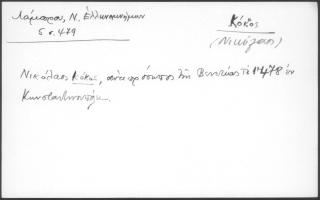 Λάμπρος, Ν. Ἑλληνομνήμων
5 σ. 479
Κόκος
(Νικόλαος)
Νικόλαος Κόκος, ἀντιπρόσωπος τῆς Βενετίας τὸ 1478 ἐν
Κωνσταντινουπόλει.